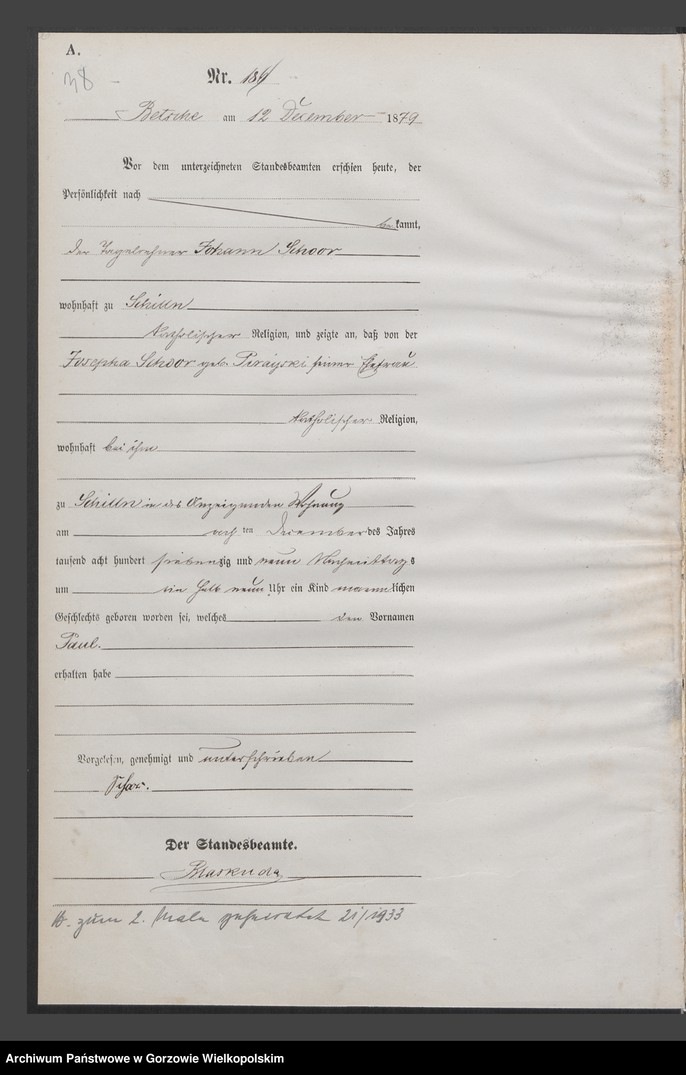 A.
38 –
Nr. 184
Betsche am 12 December 1879
Vor dem unterzeichneten Standesbeamten erschien heute, der
Persönlichkeit nach
bekannt,
der Tagelöhner Johann Schoor
wohnhaft zu Schilln
katholischer Religion, und zeigte an, daß von der
Josepha Schoor geb. seiner Ehefrau
katholischer Religion,
wohnhaft bei ihm
zu Schilln in des Anzeigenden Wohnung
am acht ten December des Jahres
tausend acht hundert siebenzig und neun Nachmittags
um ein halb neun Uhr ein Kind männlichen
Geschlechts geboren worden sei, welches den Vornamen
Paul.
erhalten habe
Vorgelesen, genehmigt und unterschrieben
Der Standesbeamte.
zum 2. Male geheiratet 21/1933
Archiwum Państwowe w Gorzowie Wielkopolskim